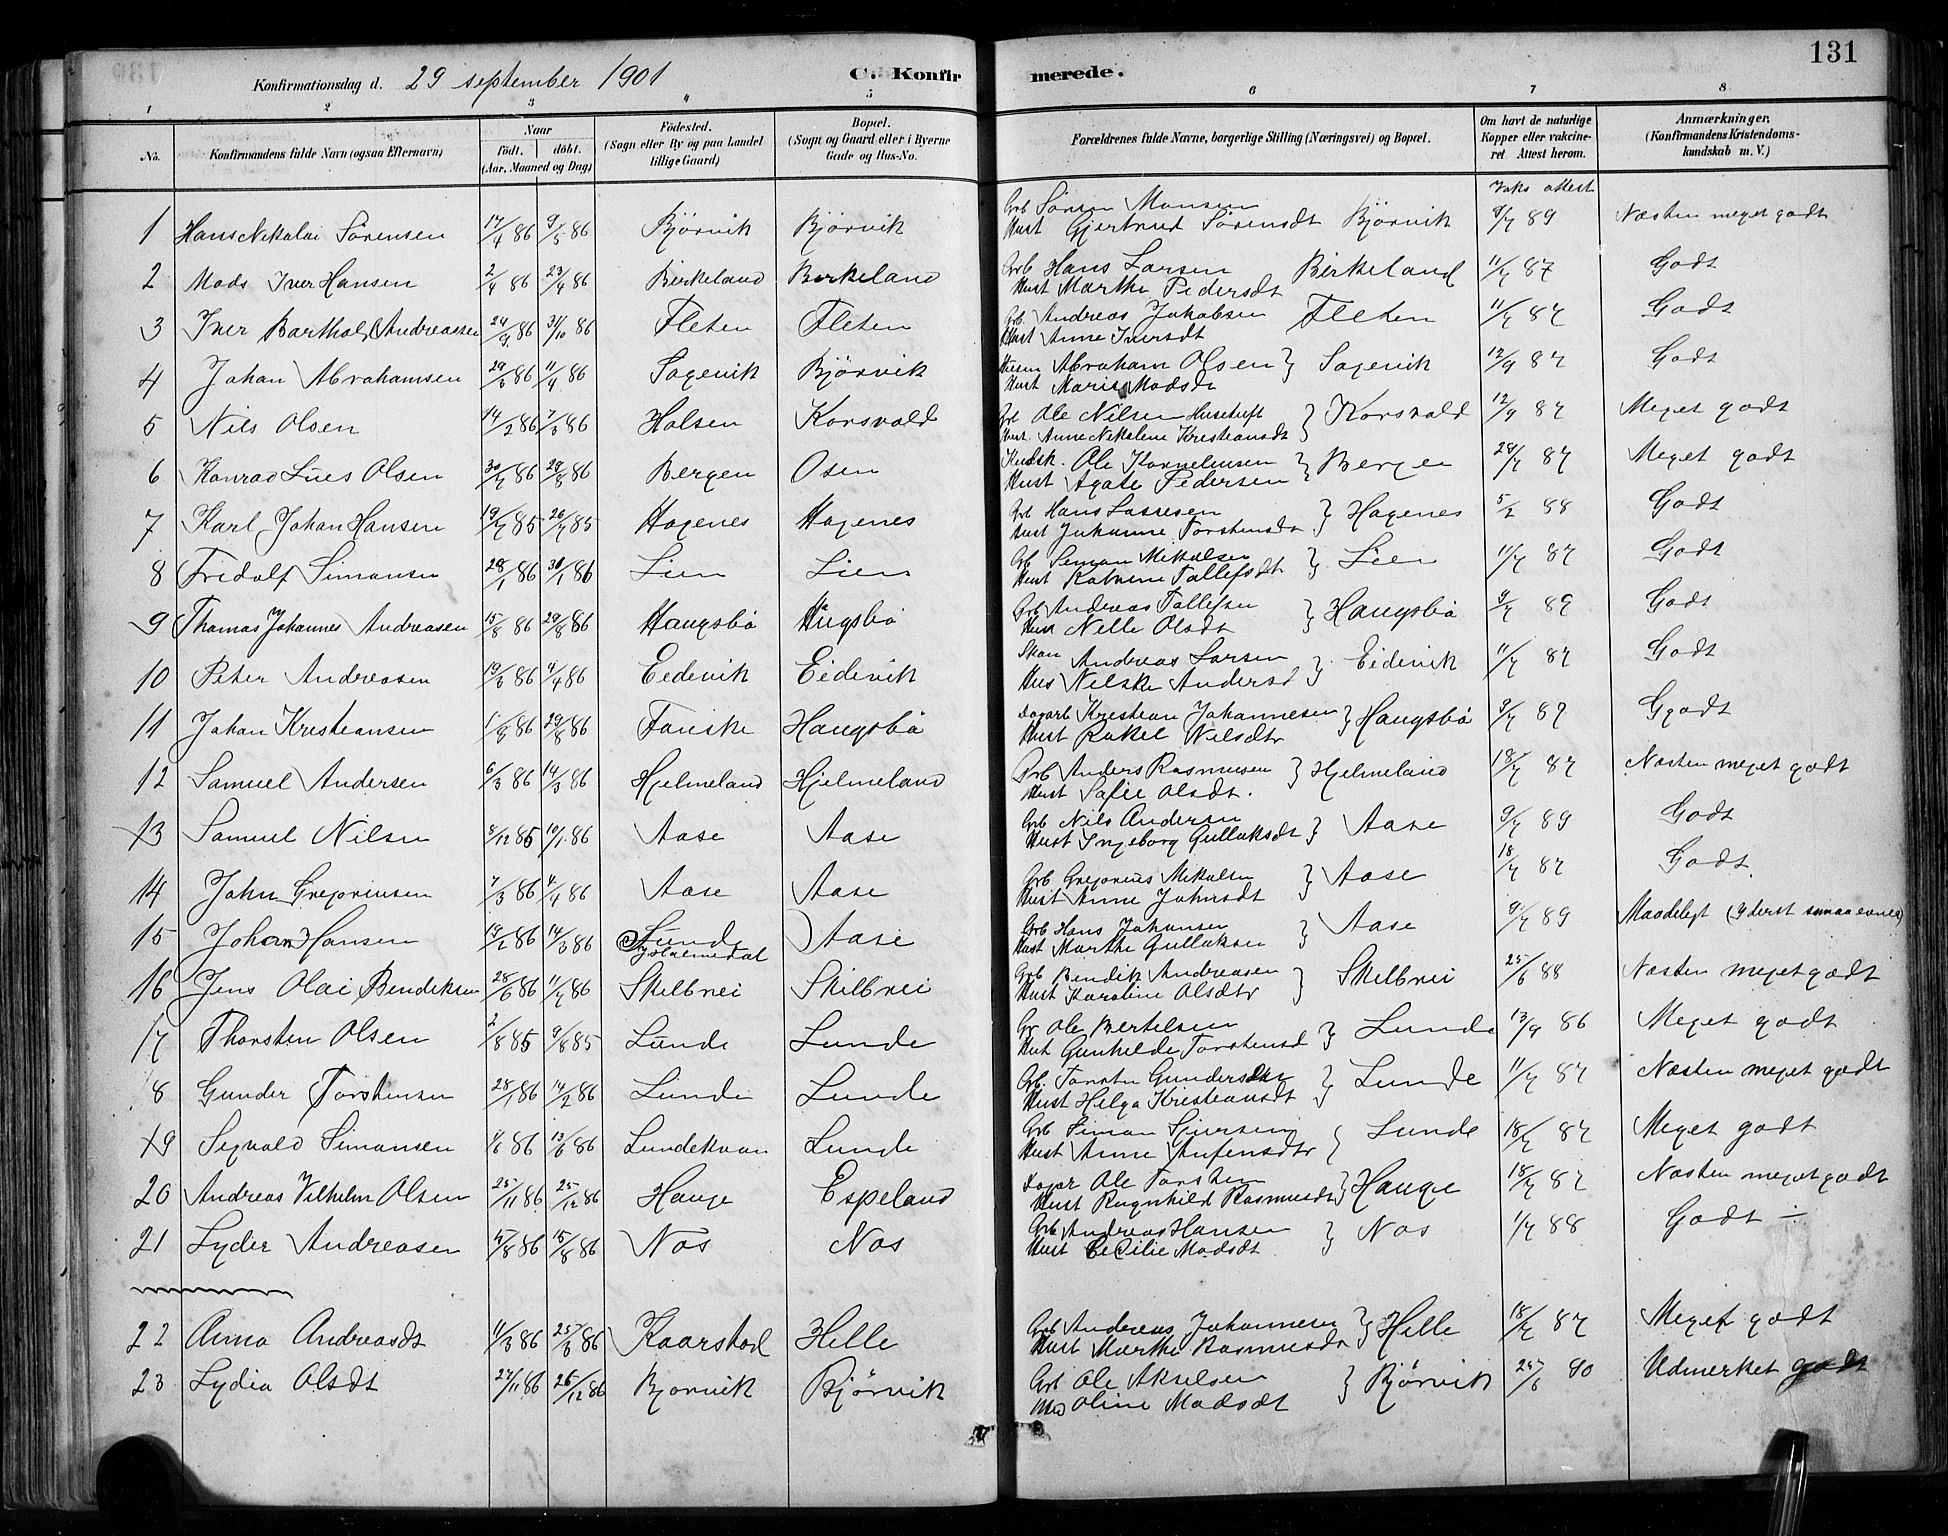 131
Konfirmationsdag d. 29 september 1901 C. Konfirmerede.
1 2 3 4 5 6 7 8
No. Konfirmandens fulde Navn (ogsaa Efternavn) Naar født. døbt. (Aar, Maaned og Dag) Fødested. (Sogn eller By og paa Landet tillige Gaard) Bopæl. (Sogn og Gaard eller i Byerne Gade og Hus-No. Forældrenes fulde Navne, borgerlige Stilling (Næringsvei) og Bopæl. Om havt de naturlige Kopper eller vakcineret Attest herom. Anmærkninger, (Konfirmandens Kristendomskundskab m. V.)
Vaks attest
1 Hans Nikolai Sörensen 17/4 86 9/5 86 Björvik Björvik Grb Sören Monsen Hust Gjertrud Sörensdt Björvik 9/7 89 Næsten meget godt
2 Mads Iver Hansen 2/4 86 23/4 86 Birkeland Birkeland Grb Hans Larsen Hust Marthe Pedersdt Birkeland 11/7 87 Godt
3 Iver Barthol Andreassen 24/9 86 31/10 86 Fleten Fleten Grb. Andreas Jakobsen Hust Anne Iversdt Fleten 11/7 87 Godt
4 Johan Abrahamsen 29/3 86 11/4 86 Sagevik Björvik Husm Abraham Olsen Hust Marie Madsdr } Sagevik 12/9 87 Godt
5 Nils Olsen 14/2 86 7/3 86 Holsen Korsvold Grb Ole Nilsen Holsetuft Hust. Anne Nikoline Kristiansdt } Korsvold 12/9 87 Meget godt
6 Konrad Lües Olsen 30/7 86 29/8 86 Bergen Osen Kudsk. Ole Korneliusen Hust Agate Pedersen } Bergen 28/7 87 Meget godt
7 Karl Johan Hansen 19/7 85 26/7 85 Hagenes Hagenes Grb Hans Lassesen Hust Johanne Torstensdr } Hagenes 5/2 88 Godt
8 Fridolf Simonsen 28/1 86 30/1 86 Lien Lien Grb Simon Mikalsen Hust Katrine Tollefsdt } Lien 11/7 87 Godt
9 Thomas Johannes Andreasen 15/8 86 29/8 86 Haugsbö Haugsbö Grb Andreas Tollefsen Hust Nille Olsdt } Haugsbö 9/7 89 Godt
10 Peter Andreasen 19/3 86 4/4 86 Eidevik Eidevik Andreas Larsen Hus Nilske Andersd } Eidevik 11/7 87 Godt
11 Johan Kristiansen 1/8 86 29/8 86 Fauske Haugsbö Dagarb Kristian Johannesen Hust Rakel Nilsdtr } Haugsbö 9/7 89 Godt
12 Samuel Andersen 6/3 86 14/3 86 Hjelmeland Hjelmeland Grb Anders Rasmusen Hust Sofie Olsdt. } Hjelmeland 18/7 87 Næsten meget godt
13 Samuel Nilsen 8/12 85 10/1 86 Aase Aase Grb Nils Andersen Hust Ingeborg Gullaksdt } Aase 9/7 89 Godt
14 John Gregoriusen 7/3 86 4/4 86 Aase Aase Grb Gregorius Mikalsen Hust Anne Johnsdt } Aase 18/7 87 Godt
15 Johan Hansen 19/2 86 14/3 86 Lunde y Holmedal Aase Grb Hans Johansen Hust Marthe Gullaksen } Aase 9/7 89 Maadeligt (Yderst smaa evner)
16 Jens Olai Bendiksen 28/6 86 11/7 86 Skilbrei Skilbrei Grb Bendik Andreasen Hust Karoline Olsdtr } Skilbrei 25/6 88 Næsten meget godt
17 Thorsten Olsen 2/8 85 9/8 85 Lunde Lunde Gr Ole Bertelsen Hust Gunhilde Torstensd } Lunde 13/9 86 Meget godt
18 Gunder Torstensen 28/1 86 14/2 86 Lunde Lunde Grb. Torsten Gundersen Hust Helga Kristiansdt } Lunde 11/7 87 Næsten meget godt
19 Sigvald Simonsen 1/6 86 13/6 86 Lundekvam Lunde Grb Simon Sjursen Hust Anne Anfensdtr } Lunde 18/7 87 Meget godt
20 Andreas Vilhelm Olsen 25/11 86 25/12 86 Hauge Espeland Dagar Ole Torsten Hust Ragnhild Rasmusdt } Hauge 18/7 87 Næsten meget godt
21 Lyder Andreasen 15/8 86 15/8 86 Nos Nos Grb Andreas Hansen Hust Cecilie Madsdt } Nos 1/7 88 Godt ÷
22 Anna Andreasdt 11/3 86 25/3 86 Kaarstad Hille Grb Andreas Johannesen Hust Marthe Rasmusdr } Hille 18/7 87 Meget godt
23 Lydia Olsdt 27/11 86 26/12 86 Bjorvik Björvik Grb Ole Akselsen Oline Madsdt } Björvik 25/6 90 Udmerket godt